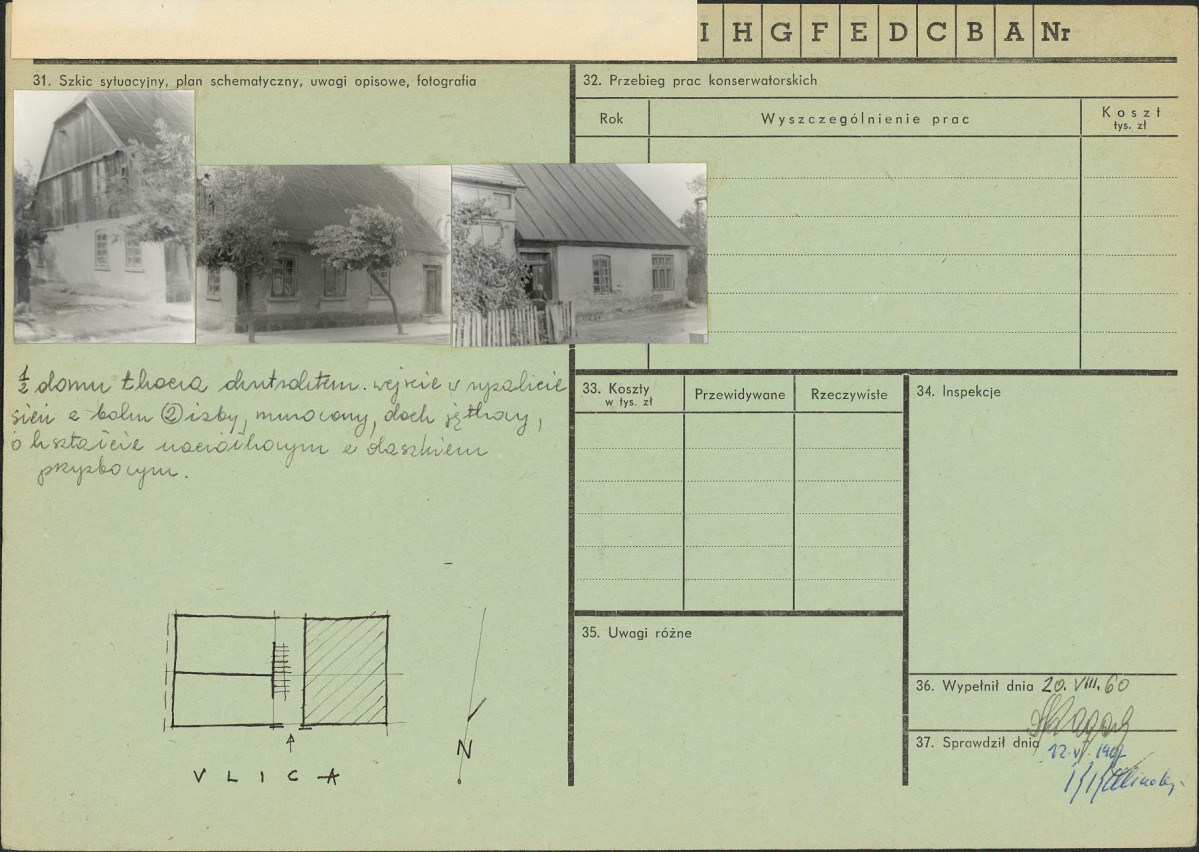 I H G F E D C B A Nr
31. Szkic sytuacyjny, plan schematyczny, uwagi opisowe, fotografia
32. Przebieg prac konserwatorskich
Rok
Wyszczególnienie prac
Koszt
tys. zł
½ domu tkacza wejście w ryzalicie
sień z boku ② izby, murowany, dach jętkowy,
o kształcie naczółkowym z daszkiem
przyzbowym.
33. Koszty
w tys. zł
Przewidywane
Rzeczywiste
34. Inspekcje
35. Uwagi różne
36. Wypełnił dnia 20. VIII. 60
37. Sprawdził dnia
N
ULICA